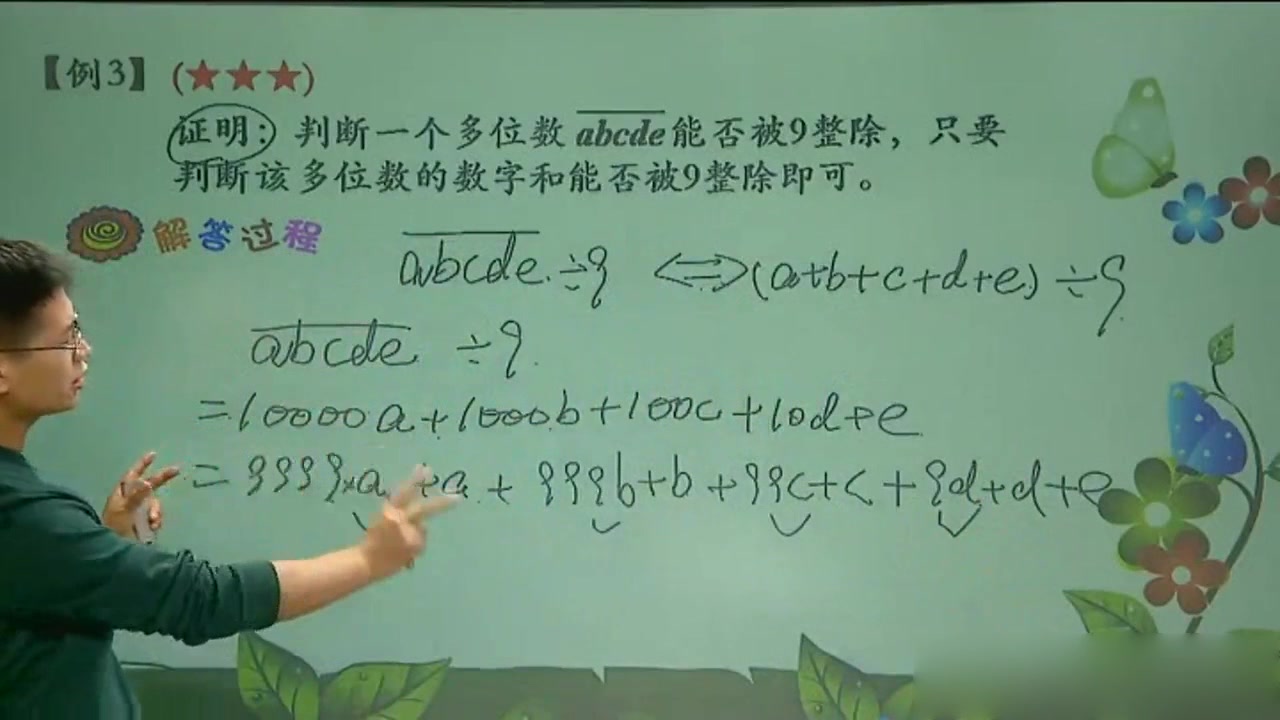 【例3】(★★★)
证明：判断一个多位数abcde能否被9整除，只要
判断该多位数的数字和能否被9整除即可。
解答过程
abcde÷9 ⟺ (a+b+c+d+e)÷9
abcde ÷9
=10000a+1000b+100c+10d+e
=9999×a+a+999b+b+99c+c+9d+d+e